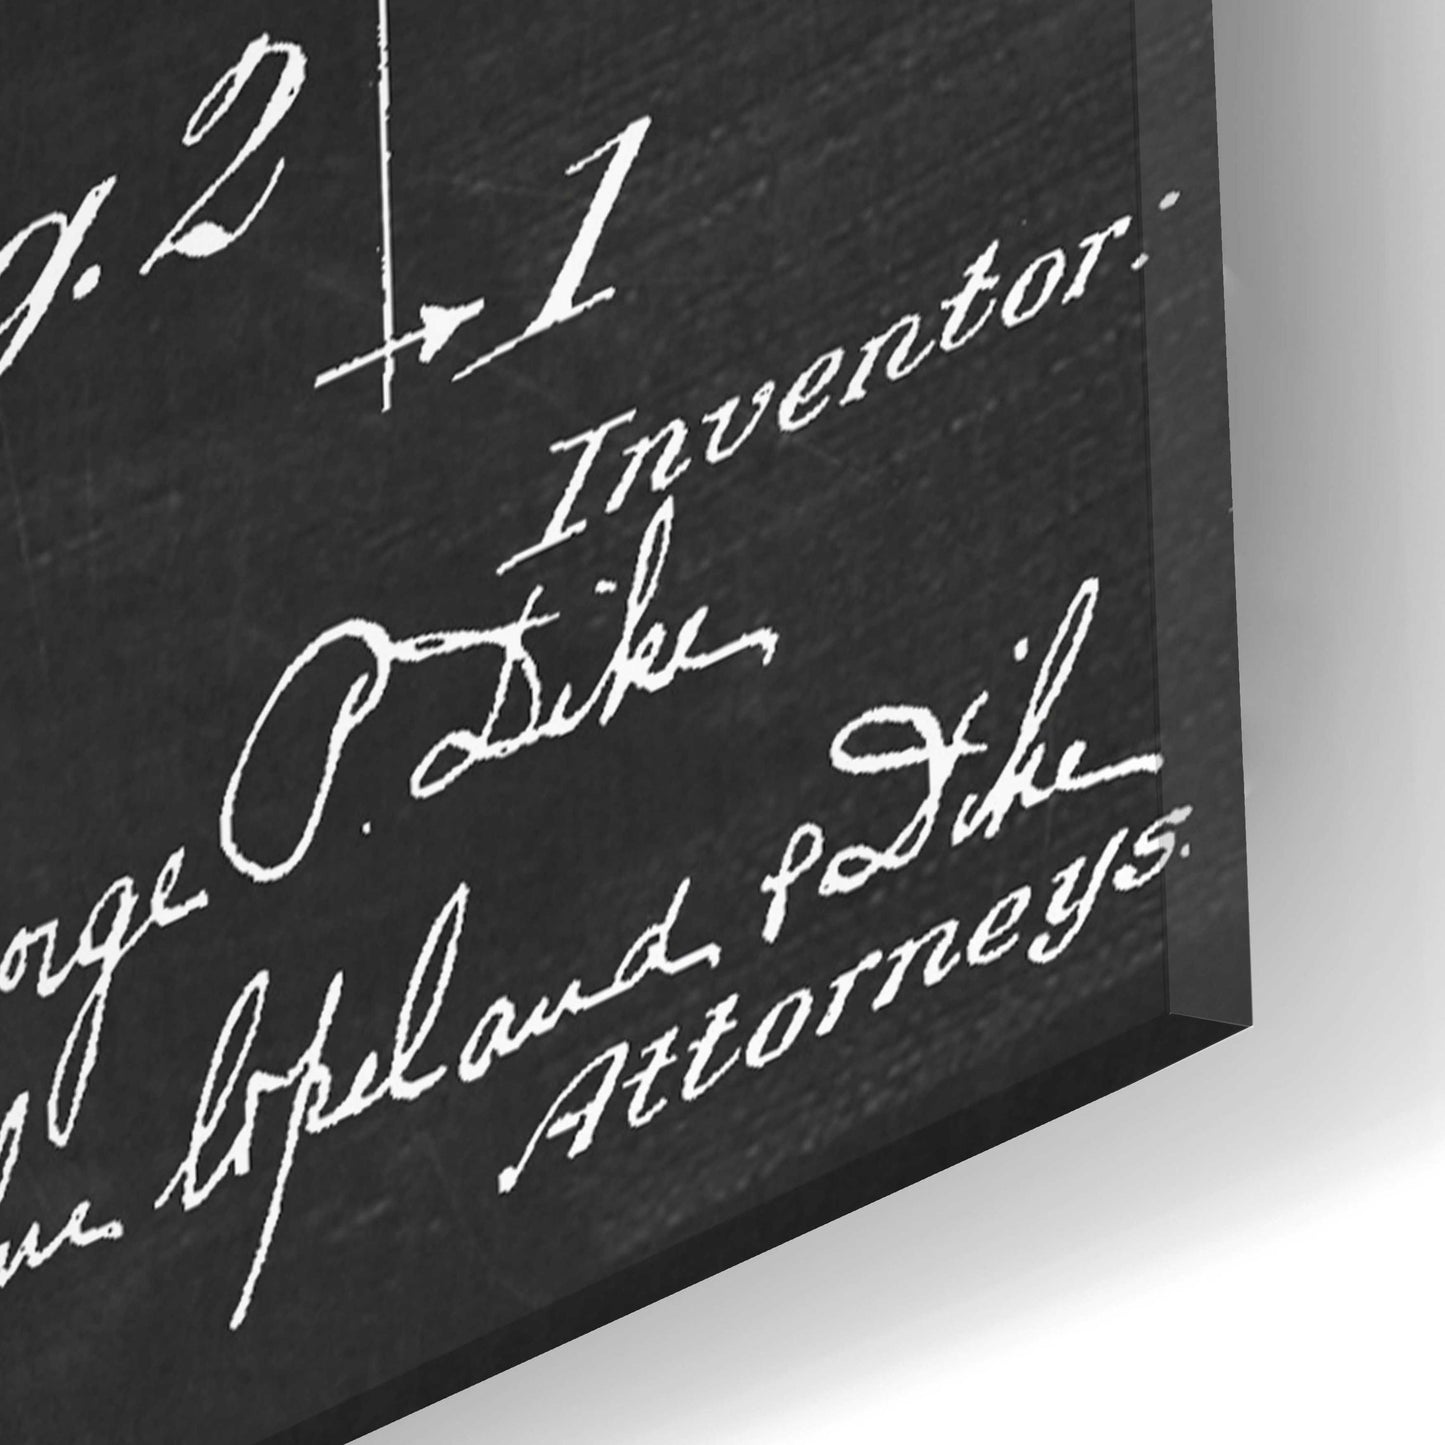 g. 2
1
Inventor:
orge P. Dike
Copeland & Dike
Attorneys.